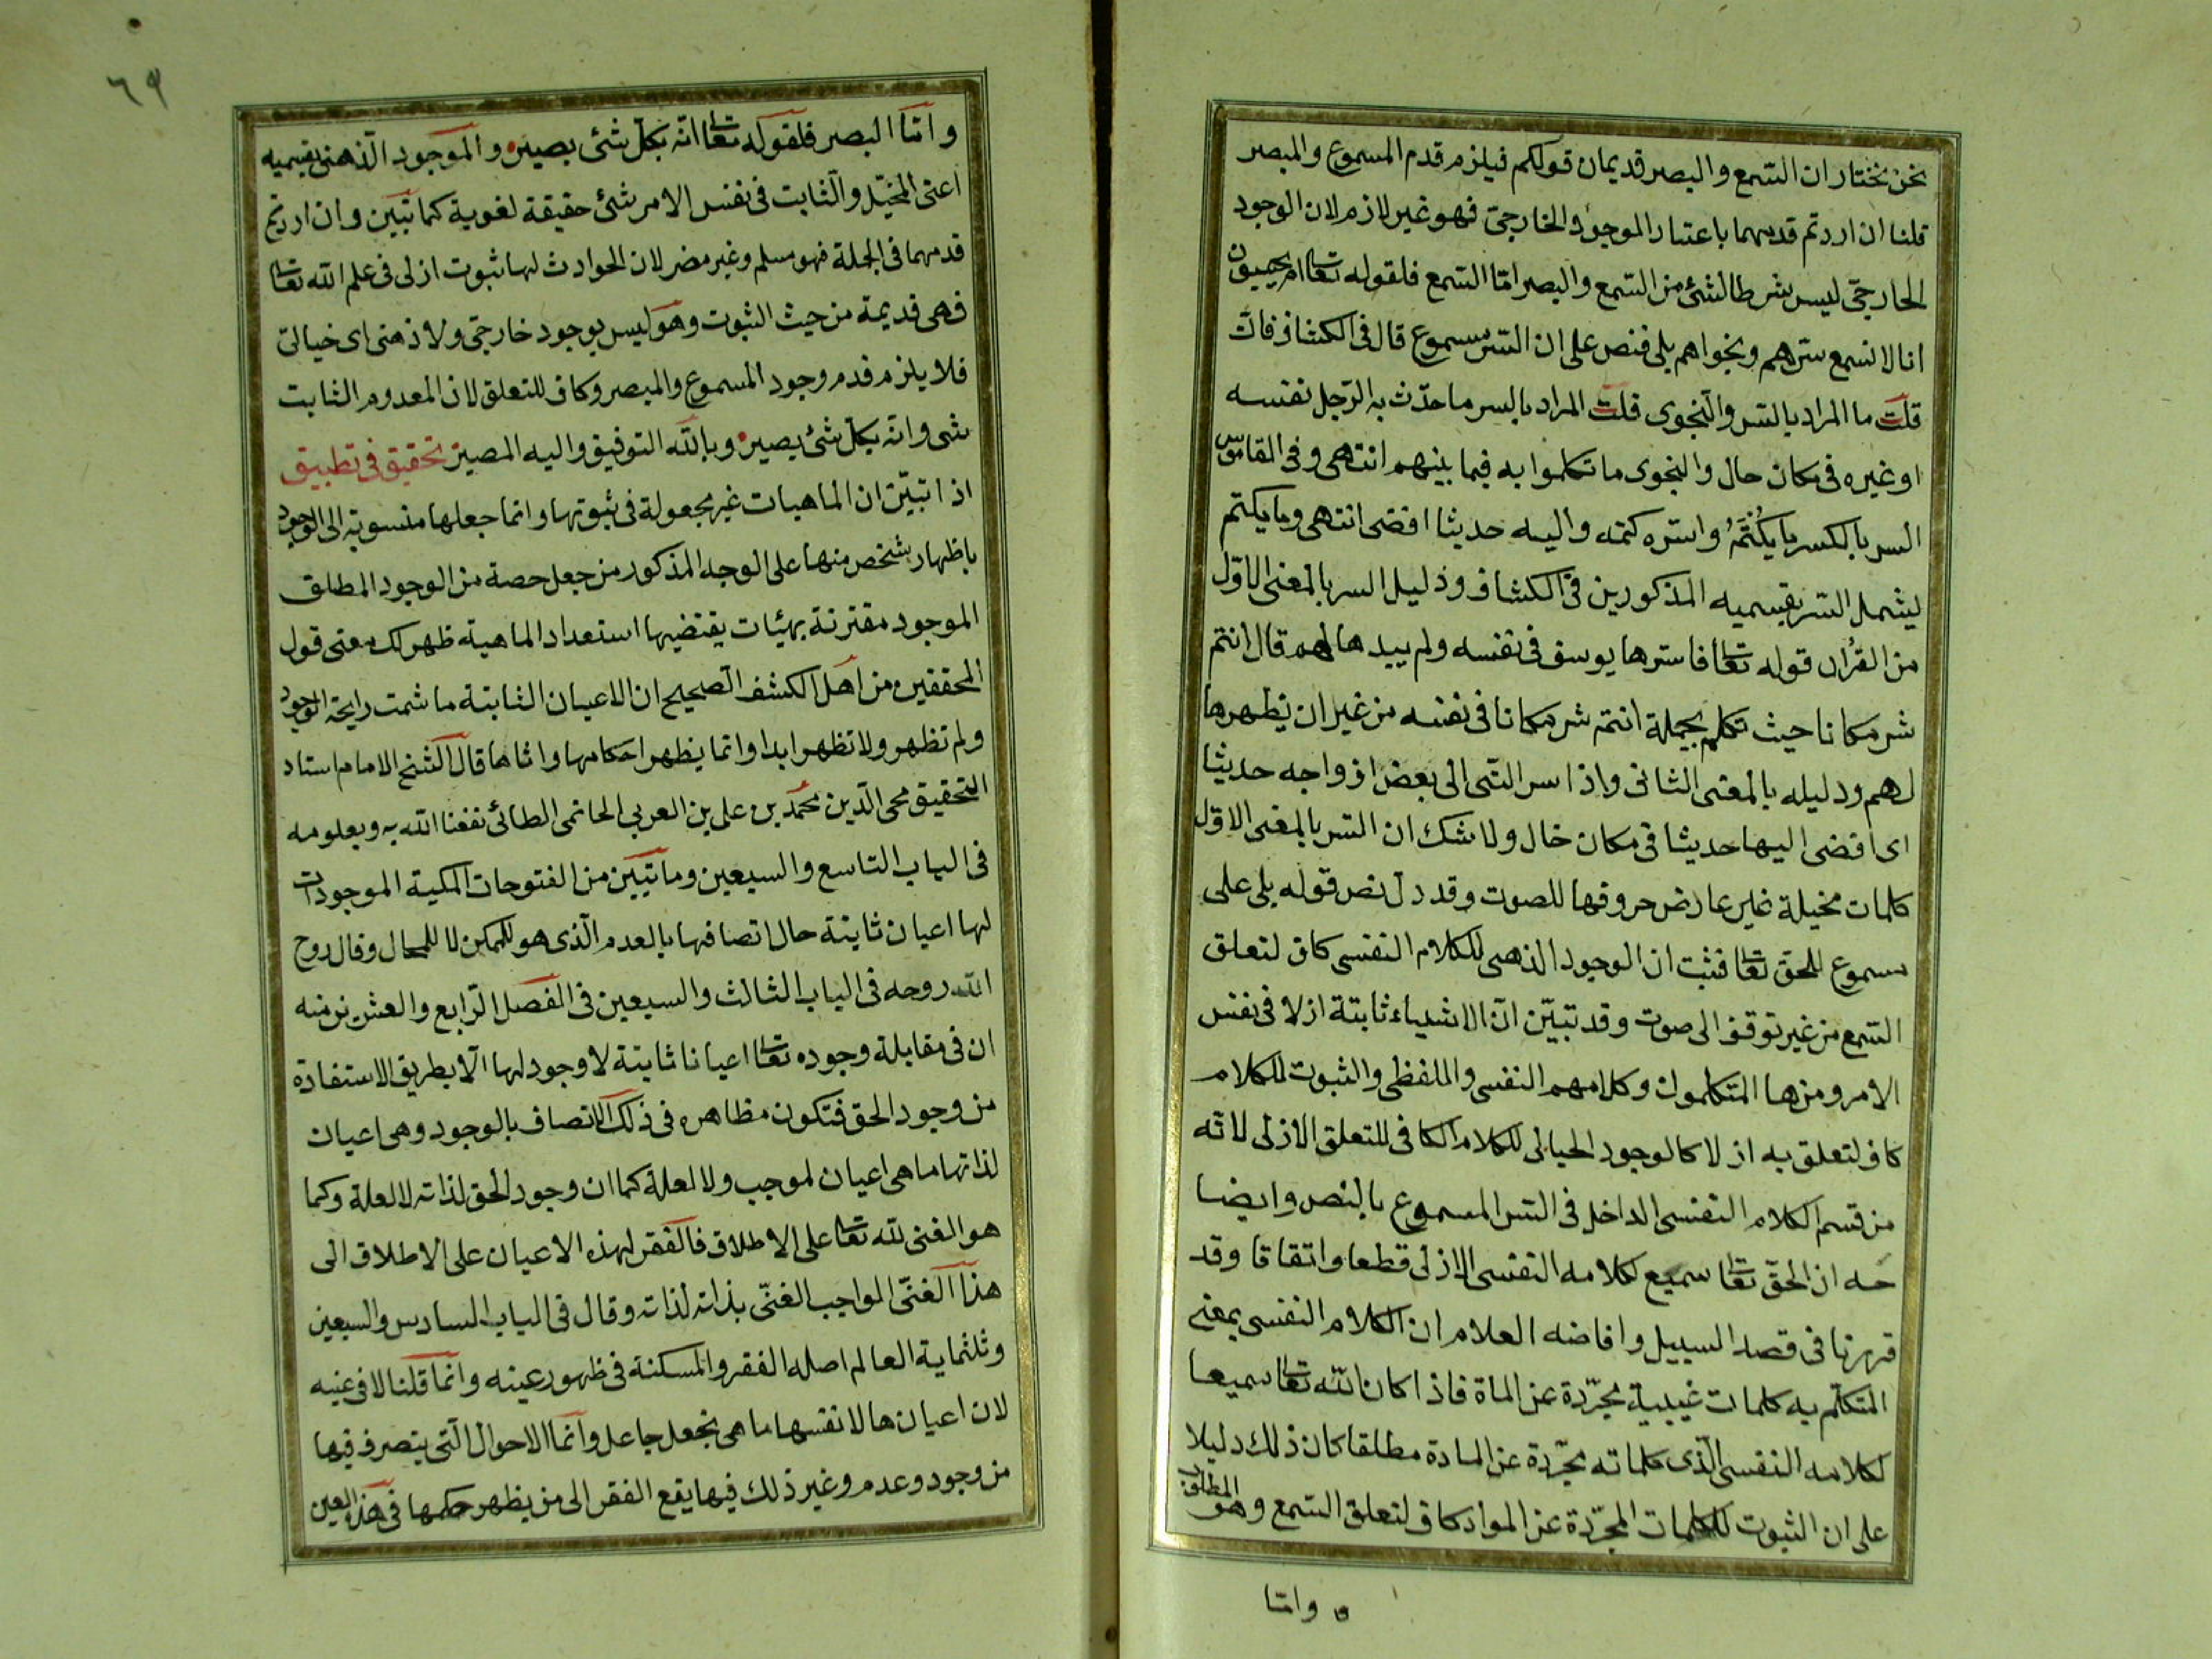 نحن نختار ان السمع والبصر قديمان قولكم فيلزم قدم المسموع والمبصر
قلنا ان اردتم قدمهما باعتبار الموجود الخارجى فهو غير لازم لان الوجود
الخارجى ليس شرطا لشئ من السمع والبصر امّا السمع فلقوله تعا ام يحسبون
انا لا نسمع سرّهم ونجواهم بلى فنص على ان السر مسموع قال فى الكشاف فان
قلت ما المراد بالسر والنجوى قلت المراد بالسر ما حدّث به الرّجل نفسه
او غيره فى مكان خال والنجوى ما تكلموا به فيما بينهم انتهى وفى القاموس
السر بالكسر ما يكتم واسره كتمه واليه حديثا افضى انتهى وما يكتم
ليشمل السر بقسميه المذكورين فى الكشاف ودليل السر بالمعنى الاوّل
من القرآن قوله تعا فاسرها يوسف فى نفسه ولم يبدها لهم قال انتم
شر مكانا حيث تكلم بجملة انتم شر مكانا فى نفسه من غير ان يظهرها
لهم ودليله بالمعنى الثانى واذ اسر النّبى الى بعض ازواجه حديثا
اى افضى اليها حديثا فى مكان خال ولا شك ان السر بالمعنى الاوّل
كلمات مخيلة غير عارض حروفها للصوت وقد دل نص قوله بلى على
مسموع للحق تعا فثبت ان الوجود الذهنى للكلام النفسى كاف لتعلق
السّمع من غير توقف الى صوت وقد تبيّن انّ الاشياء ثابتة ازلا فى نفس
الامر ومنها المتكلمون وكلامهم النفسى واللفظى والثبوت للكلام
كاف لتعلق به ازلا كالوجود الخيالى للكلام الكافى للتعلق الازلى لانّه
من قسم الكلام النفسى الداخل فى السر المسموع بالنص وايضا
حه ان الحقّ تعا سميع لكلامه النفسى الازلى قطعا واتفاقا وقد
قررنا فى قصد السبيل وافاضه العلام ان الكلام النفسى بمعنى
المتكلّم به كلمات غيبية مجرّدة عن الماة فاذا كان الله تعا سميعا
لكلامه النفسى الّذى كلماته مجرّدة عن المادة مطلقا كان ذلك دليلا
على ان الثبوت للكلمات المجرّدة عن المواد كاف لتعلق السّمع وهو المطلوب
وامّا
٦٩
وامّا البصر فلقوله تعا انّه بكلّ شئ بصير والموجود الذهنى بقسميه
اعنى المخيّل والثابت فى نفس الامر شئ حقيقة لغوية كما تبيّن وان اردتم
قدمهما فى الجملة فهو مسلم وغير مضر لان الحوادث لها ثبوت ازلى فى علم الله تعا
فهى قديمة من حيث الثبوت وهو ليس بوجود خارجى ولا ذهنى اى خيالى
فلا يلزم قدم وجود المسموع والمبصر وكاف للتعلق لان المعدوم الثابت
شى وانّه بكل شئ بصير وبالله التوفيق واليه المصير تحقيق فى تطبيق
اذا تبيّن ان الماهيات غير مجعولة فى ثبوتها وانما جعلها منسوبة الى الوجود
باظهار شخص منها على الوجه المذكور من جعل حصة من الوجود المطلق
الموجود مقترنة بهيئات يقتضيها استعداد الماهية ظهر لك معنى قول
المحققين من اهل الكشف الصحيح ان الاعيان الثابتة ما شمت رايحة الوجود
ولم تظهر ولا تظهر ابدا وانما يظهر احكامها واثاها قال الشيخ الامام استاد
التحقيق محى الدّين محمّد بن على بن العربى الحاتمى الطائى نفعنا الله به وبعلومه
فى الباب التاسع والسبعين ومأتيين من الفتوحات المكية الموجودات
لها اعيان ثابتة حال اتصافها بالعدم الّذى هو للممكن لا للمحال وقال روح
الله روحه فى الباب الثالث والسبعين فى الفصل الرّابع والعشرين منه
ان فى مقابلة وجوده تعا اعيانا ثابتة لا وجود لها الّا بطريق الاستفادة
من وجود الحق فتكون مظاهره فى ذلك الاتصاف بالوجود وهى اعيان
لذاتها ما هى اعيان لموجب ولا لعلة كما ان وجود الحق لذاته لا لعلة وكما
هو الغنى لله تعا على الاطلاق فالفقر لهذه الاعيان على الاطلاق الى
هذا الغنىّ الواجب الغنىّ بذاته لذاته وقال فى الباب السادس والسبعين
وثلثماية العالم اصله الفقر والمسكنة فى ظهور عينه وانما قلنا لا فى عينه
لان اعيانها لانفسها ما هى بجعل جاعل وانما الاحوال الّتى يتصرف فيها
من وجود وعدم وغير ذلك فيها يقع الفقر الى من يظهر حكمها فى هذه العين